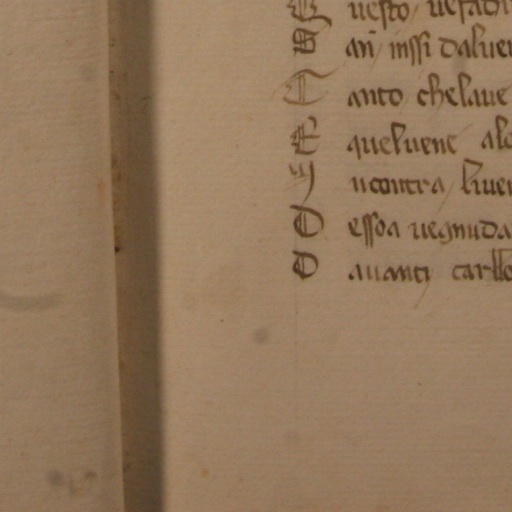 Q uesto uesadi
S an inssi daluer
T anto chelaue
E queluene alo
I ncontra liuer
D essoa uegnuda
D auanti carllo